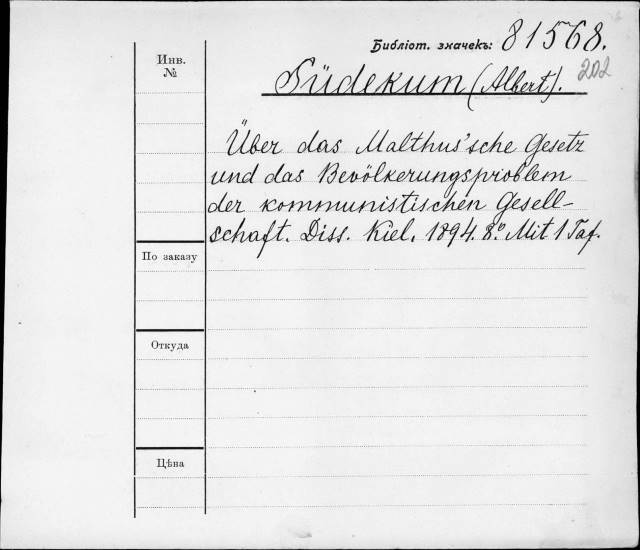 Библіот. значекъ: 81568.
202
Инв. №
Südekum (Albert).
Über das Malthus'sche Gesetz
und das Bevölkerungsproblem
der kommunistischen Gesell-
schaft. Diss. Kiel. 1894. 8º. Mit 1 Taf.
По заказу
Откуда
Цѣна